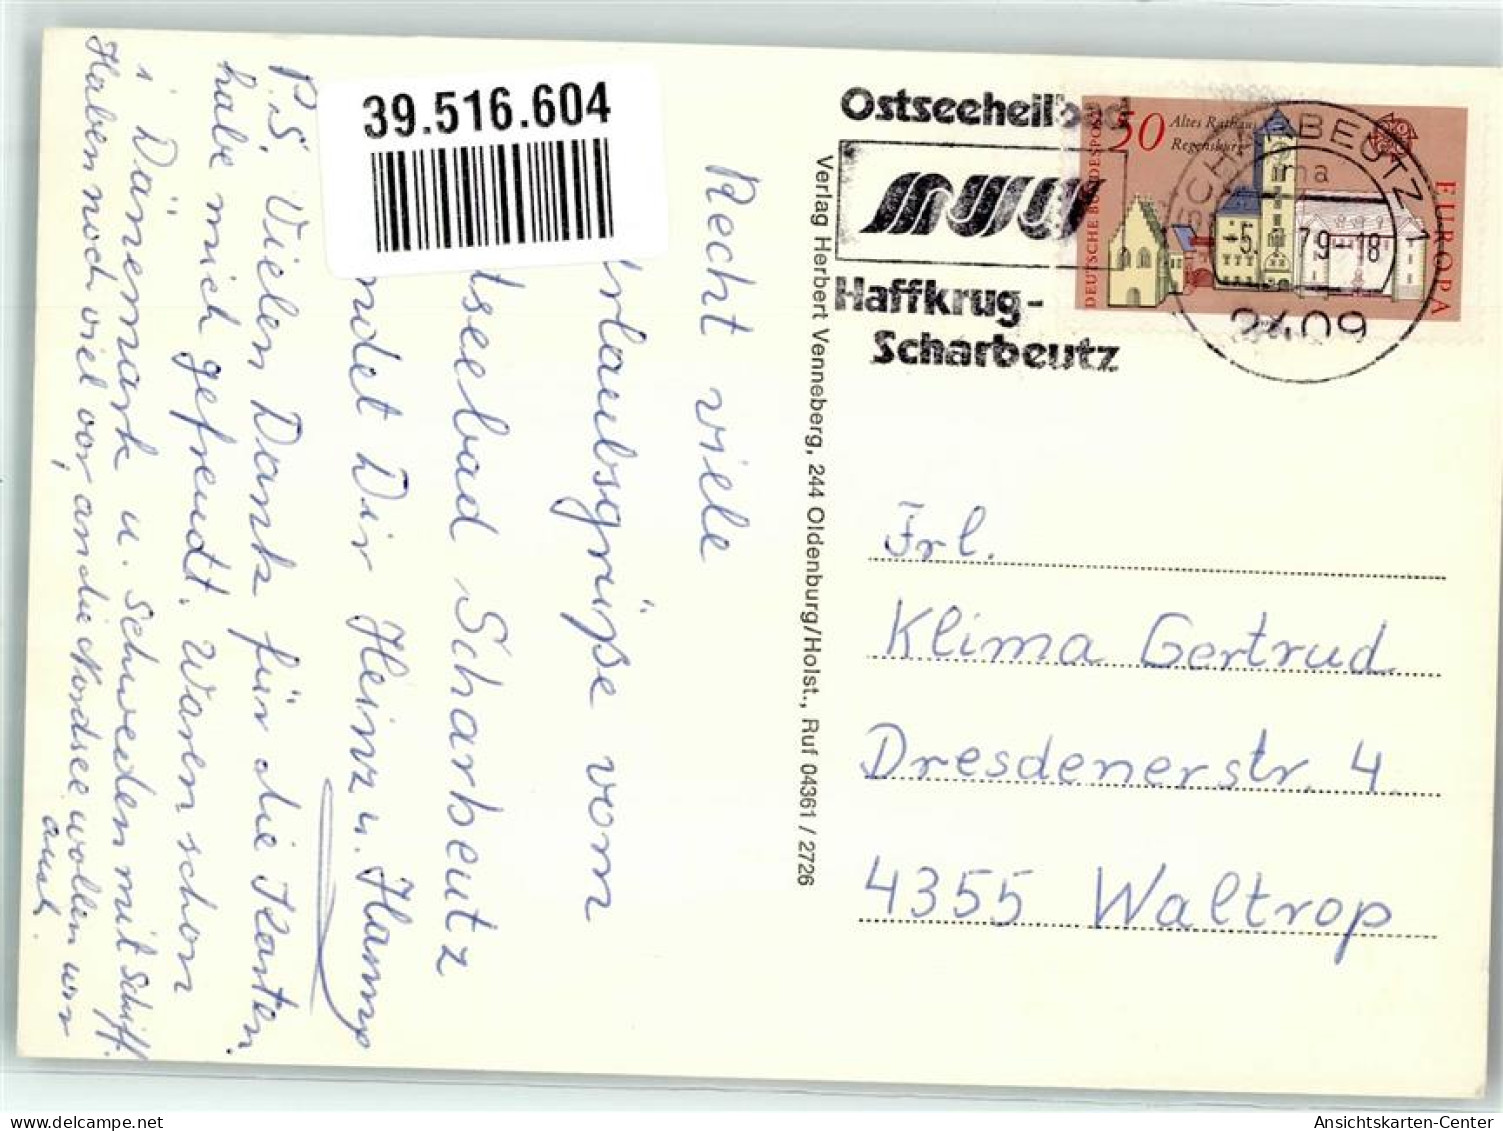 39.516.604
Recht viele
rlaubsgrüße vom
tseebad Scharbeutz
ndet Dir Heinz u.
P.S. Vielen Dank für die Karten,
habe mich gefreudt. Waren schon
i Dänemark u. Schweden mit Schiff.
Haben noch viel vor, an die Nordsee wollen wir
auch.
Verlag Herbert Venneberg, 244 Oldenburg/Holst., Ruf 04361 / 2726
Ostseeheilbad
Haffkrug-
Scharbeutz
DEUTSCHE BUNDESPOST
50
Altes Rathaus
Regensburg
EUROPA
SCHARBEUTZ 1
ma
-5. 79-18
2409
Frl.
Klima Gertrud
Dresdenerstr. 4
4355 Waltrop
Ansichtskarten-Center